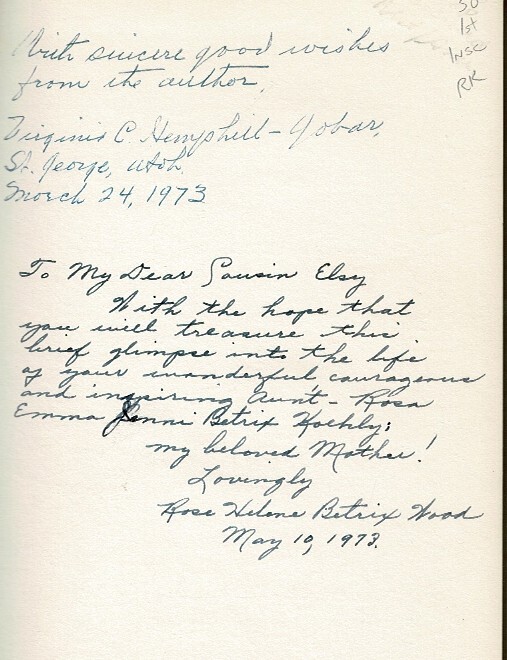 30
1st
INSC
RK
With sincere good wishes
from the author,
Virginia C. Hemphill-Gobar,
St. George, Utah.
March 24, 1973
To My Dear Cousin Elsy
With the hope that
you will treasure this
brief glimpse into the life
of your wonderful courageous
and inspiring Aunt - Rosa
Emma Jenni Betrix Koehly:
my beloved Mother!
Lovingly
Rose Helene Betrix Wood
May 10, 1973.